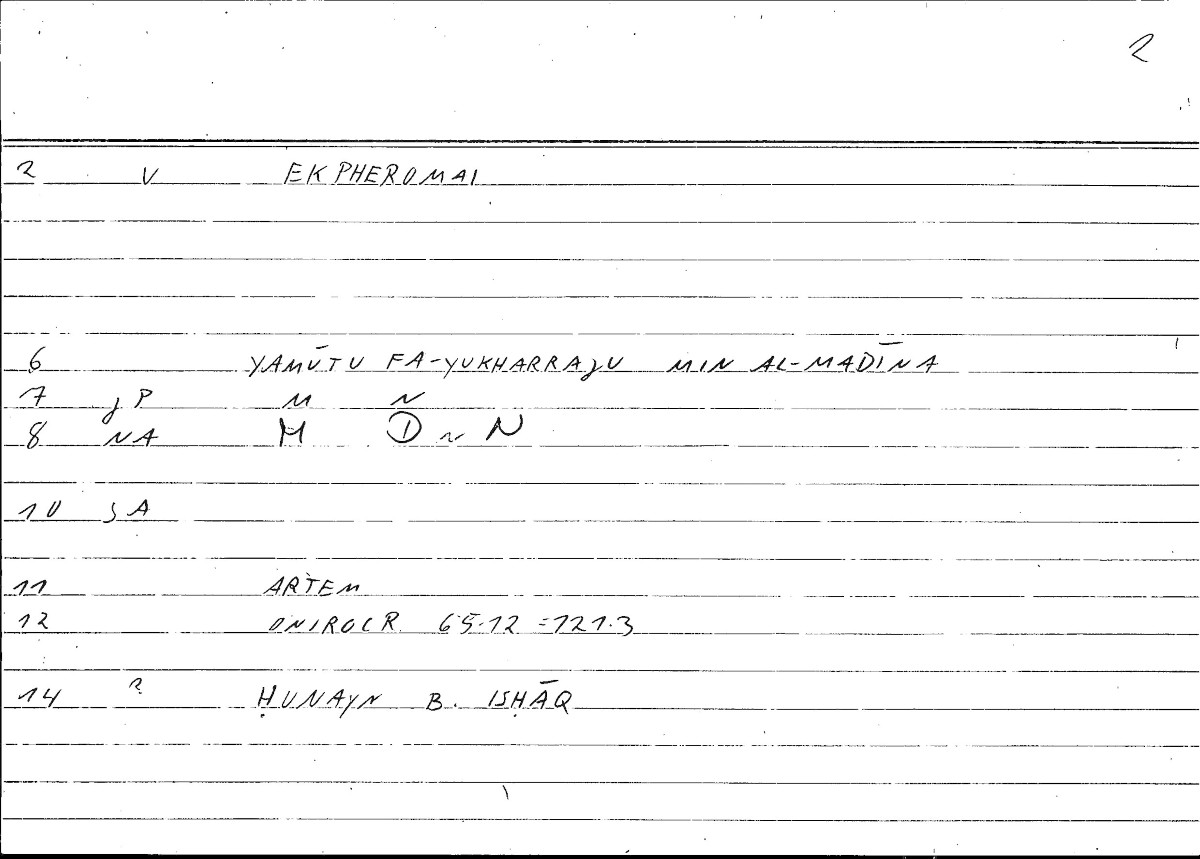 2
2 V EKPHEROMAI
6 YAMŪTU FA-YUKHARRAJU MIN AL-MADĪNA
7 JP M N
8 NA M D N
10 SA
11 ARTEM
12 ONIROCR. 65.12 = 121.3
14 ? ḤUNAYN B. ISḤĀQ